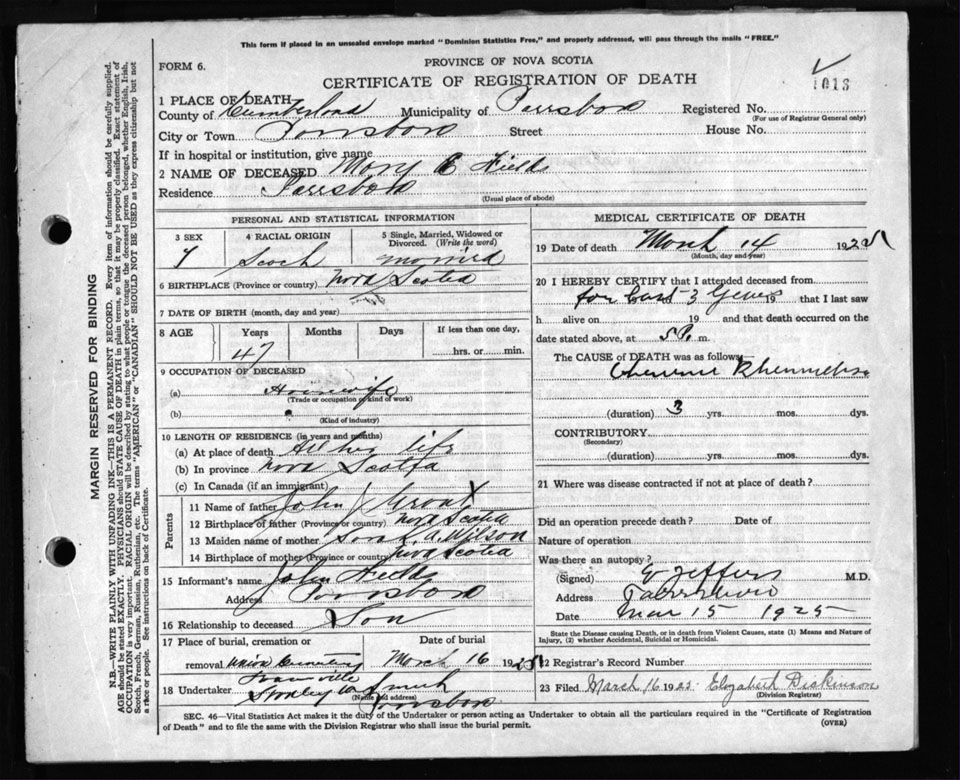 This form if placed in an unsealed envelope marked "Dominion Statistics Free," and properly addressed, will pass through the mails "FREE."
FORM 6.
PROVINCE OF NOVA SCOTIA
CERTIFICATE OF REGISTRATION OF DEATH
1013
1 PLACE OF DEATH—
County of Cumberland Municipality of Parrsboro Registered No.
(For use of Registrar General only)
City or Town Parrsboro Street House No.
If in hospital or institution, give name
2 NAME OF DECEASED Mary E Fields
Residence Parrsboro
(Usual place of abode)
PERSONAL AND STATISTICAL INFORMATION
3 SEX 4 RACIAL ORIGIN 5 Single, Married, Widowed or Divorced. (Write the word)
F Scoch Married
6 BIRTHPLACE (Province or country) Nova Scotia
7 DATE OF BIRTH (month, day and year)
8 AGE Years Months Days If less than one day,
47 hrs. or min.
9 OCCUPATION OF DECEASED
(a) Housewife
(Trade or occupation or kind of work)
(b)
(Kind of industry)
10 LENGTH OF RESIDENCE (in years and months)
(a) At place of death All her life
(b) In province Nova Scotia
(c) In Canada (if an immigrant)
Parents
11 Name of father John
12 Birthplace of father (Province or country) Nova Scotia
13 Maiden name of mother Sarah A. Wilson
14 Birthplace of mother (Province or country) Nova Scotia
15 Informant's name John Fields
Address Parrsboro
16 Relationship to deceased Son
17 Place of burial, cremation or Date of burial
removal Union Cemetery March 16 1925
18 Undertaker Stanley
(Name and address)
Parrsboro
MEDICAL CERTIFICATE OF DEATH
19 Date of death March 14 1925
(Month, day and year)
20 I HEREBY CERTIFY that I attended deceased from
for last 3 Years 19 that I last saw
h alive on 19 and that death occurred on the
date stated above, at 5 P. m.
The CAUSE of DEATH was as follows:
(duration) 3 yrs. mos. dys.
CONTRIBUTORY
(Secondary)
(duration) yrs. mos. dys.
21 Where was disease contracted if not at place of death?
Did an operation precede death? Date of
Nature of operation
Was there an autopsy?
(Signed) Jeffers M.D.
Address Parrsboro
Date Mar 15 1925
State the Disease causing Death, or in death from Violent Causes, state (1) Means and Nature of Injury, (2) whether Accidental, Suicidal or Homicidal.
22 Registrar's Record Number
23 Filed March 16 1925 Elizabeth Dickinson
(Division Registrar)
SEC. 46—Vital Statistics Act makes it the duty of the Undertaker or person acting as Undertaker to obtain all the particulars required in the "Certificate of Registration
of Death" and to file the same with the Division Registrar who shall issue the burial permit.
(OVER)
MARGIN RESERVED FOR BINDING
N.B.—WRITE PLAINLY WITH UNFADING INK—THIS IS A PERMANENT RECORD. Every item of information should be carefully supplied.
AGE should be stated EXACTLY. PHYSICIANS should STATE CAUSE OF DEATH in plain terms, so that it may be properly classified. Exact statement of
OCCUPATION is very important. RACIAL ORIGIN will be described by stating to what people or tongue the deceased person belonged, whether English, Irish,
Scotch, French, German, Russian, Ruthenian, etc. The terms "AMERICAN" or "CANADIAN" SHOULD NOT BE USED as they express citizenship but not
a race or people. See instructions on back of Certificate.